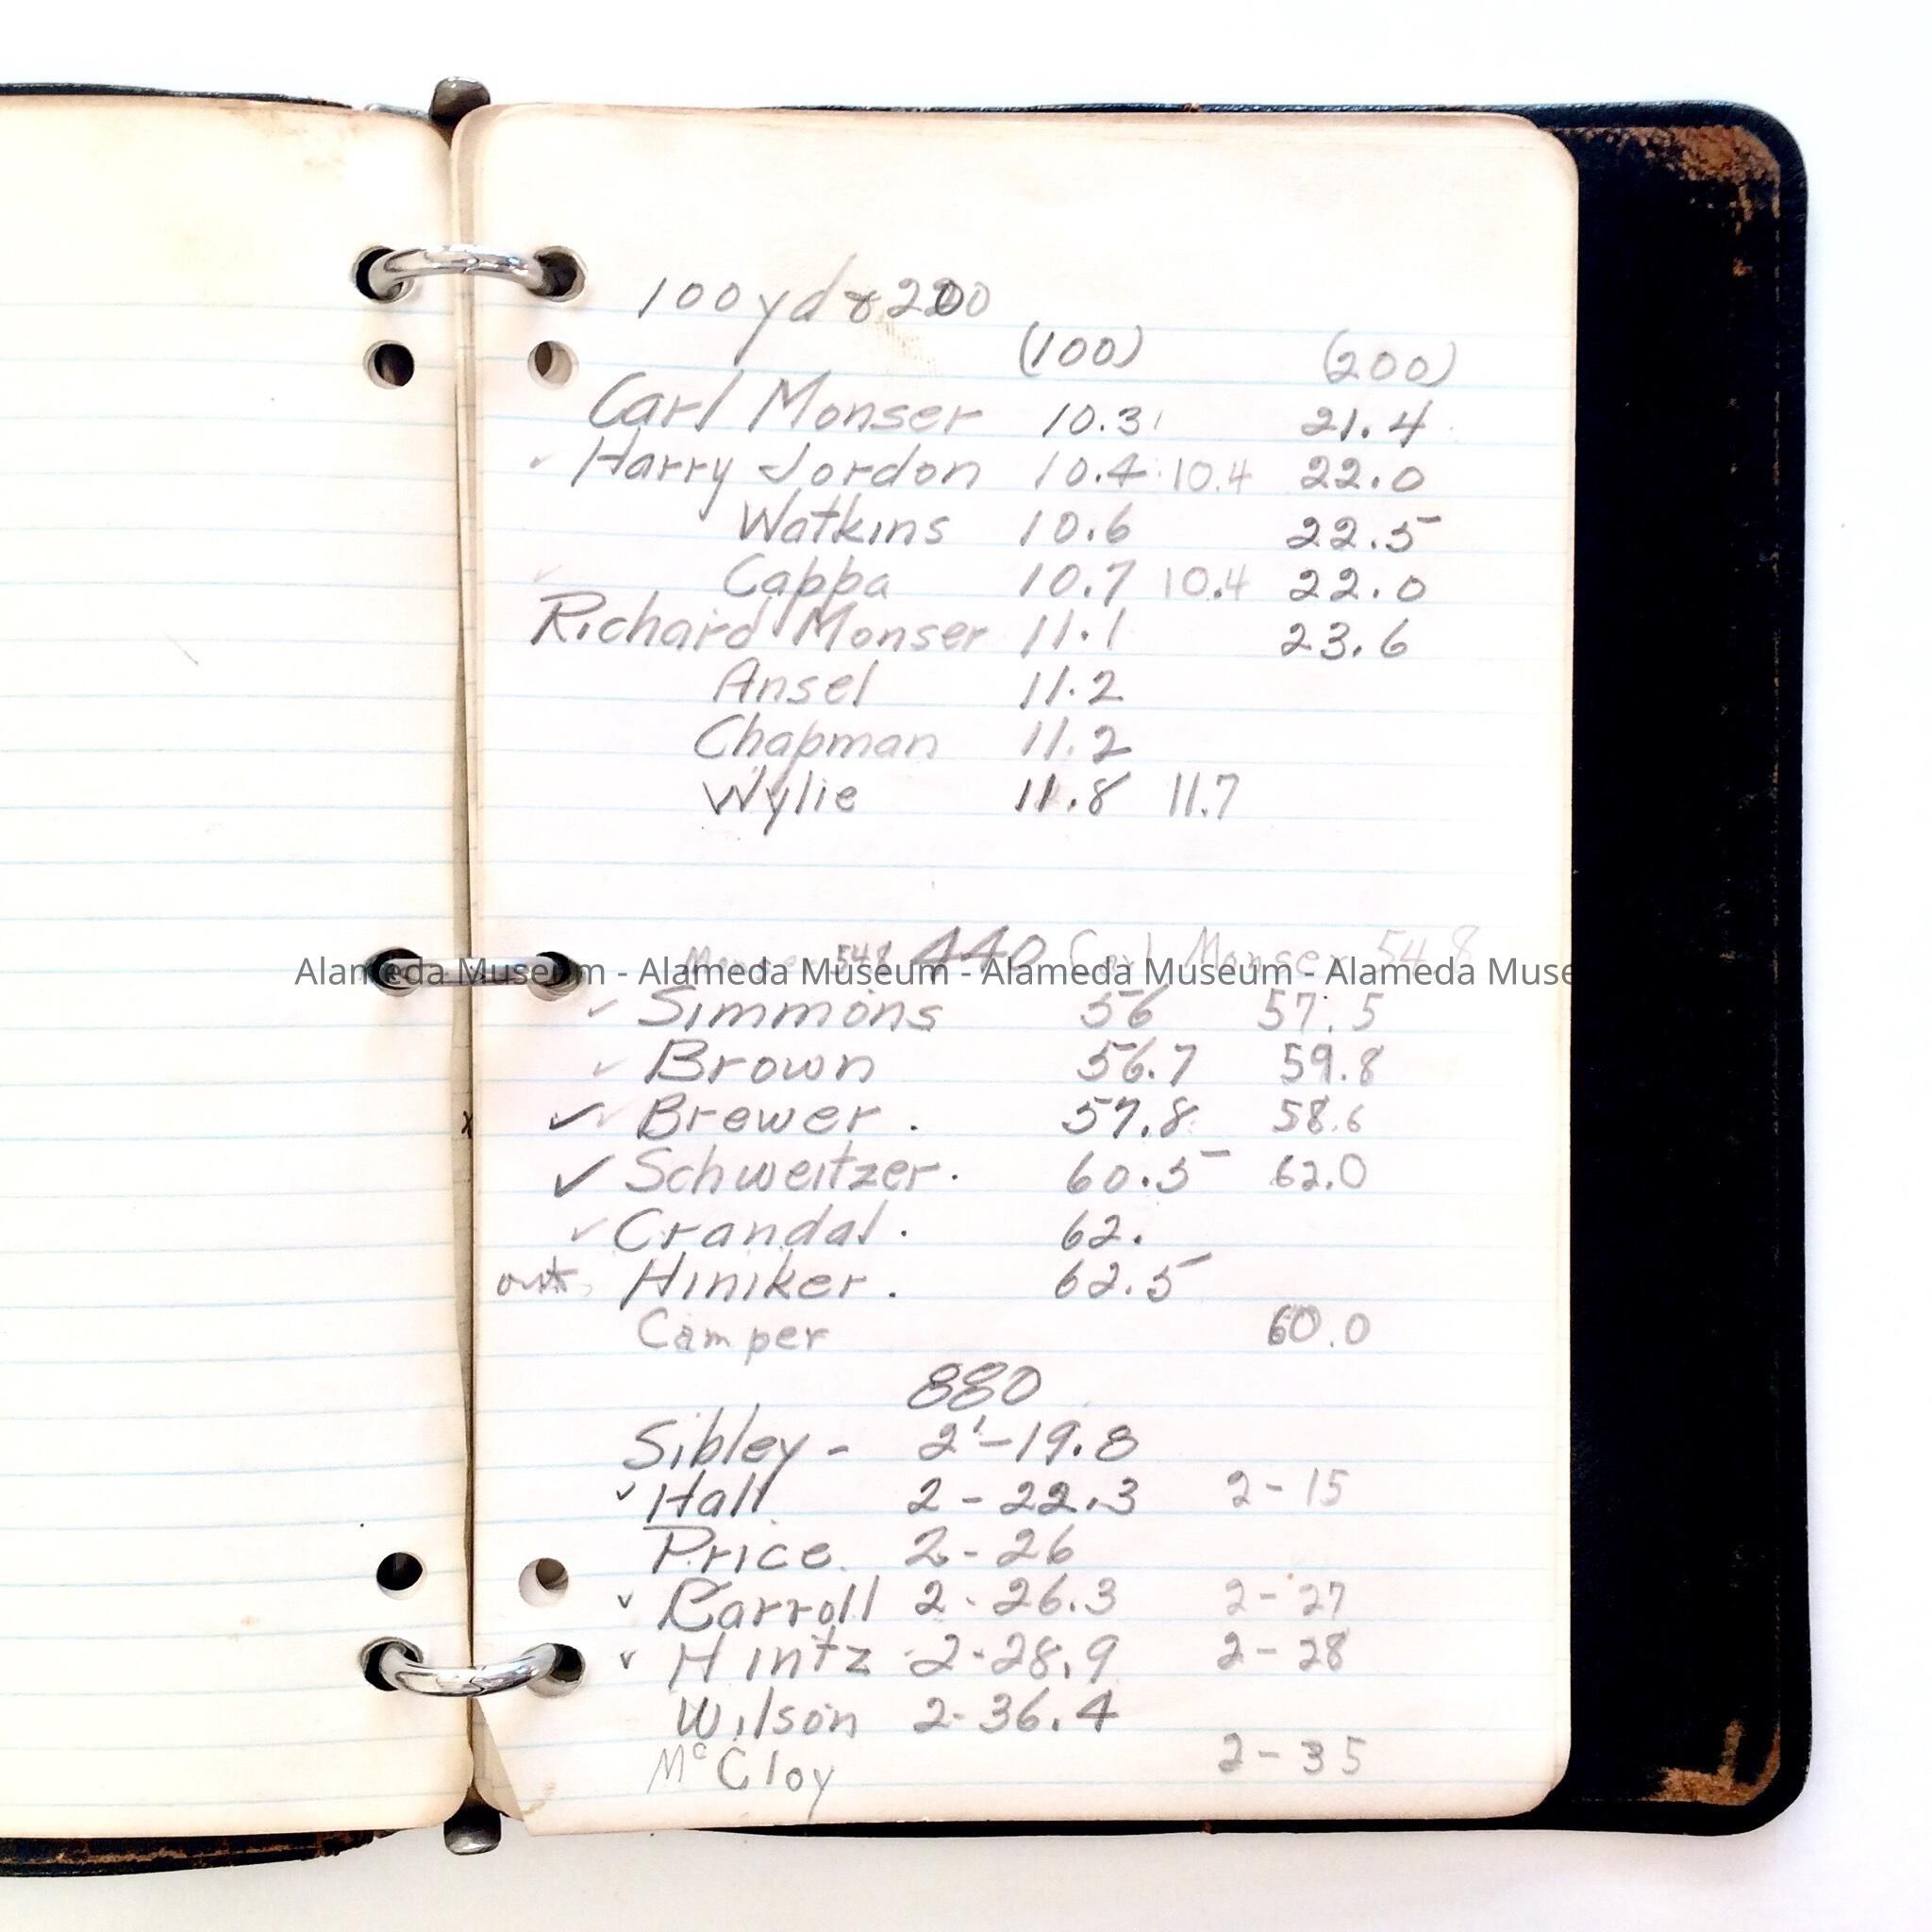 100 yd & 200
(100) (200)
Carl Monser 10.3 21.4
✓ Harry Jordon 10.4 10.4 22.0
Watkins 10.6 22.5
✓ Cappa 10.7 10.4 22.0
Richard Monser 11.1 23.6
Ansel 11.2
Chapman 11.2
Wylie 11.8 11.7
Monser 54.8 440 Carl Monser 54.8
Alameda Museum - Alameda Museum - Alameda Museum - Alameda Muse
✓ Simmons 56 57.5
✓ Brown 56.7 59.8
✓✓ Brewer. 57.8 58.6
✓ Schweitzer. 60.5 62.0
✓ Crandal. 62.
out Hiniker. 62.5
Camper 60.0
880
Sibley - 2'-19.8
✓ Hall 2-22.3 2-15
Price. 2-26
✓ Carroll 2-26.3 2-27
✓ Hintz 2-28.9 2-28
Wilson 2-36.4
McCloy 2-35